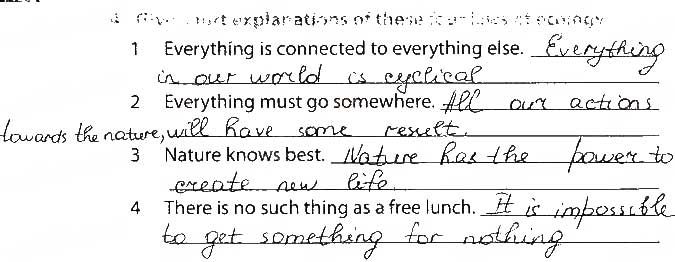 4 Give short explanations of these four laws of ecology
1 Everything is connected to everything else. Everything
in our world is cyclical
2 Everything must go somewhere. All our actions
towards the nature, will have some result.
3 Nature knows best. Nature has the power to
create new life.
4 There is no such thing as a free lunch. It is impossible
to get something for nothing